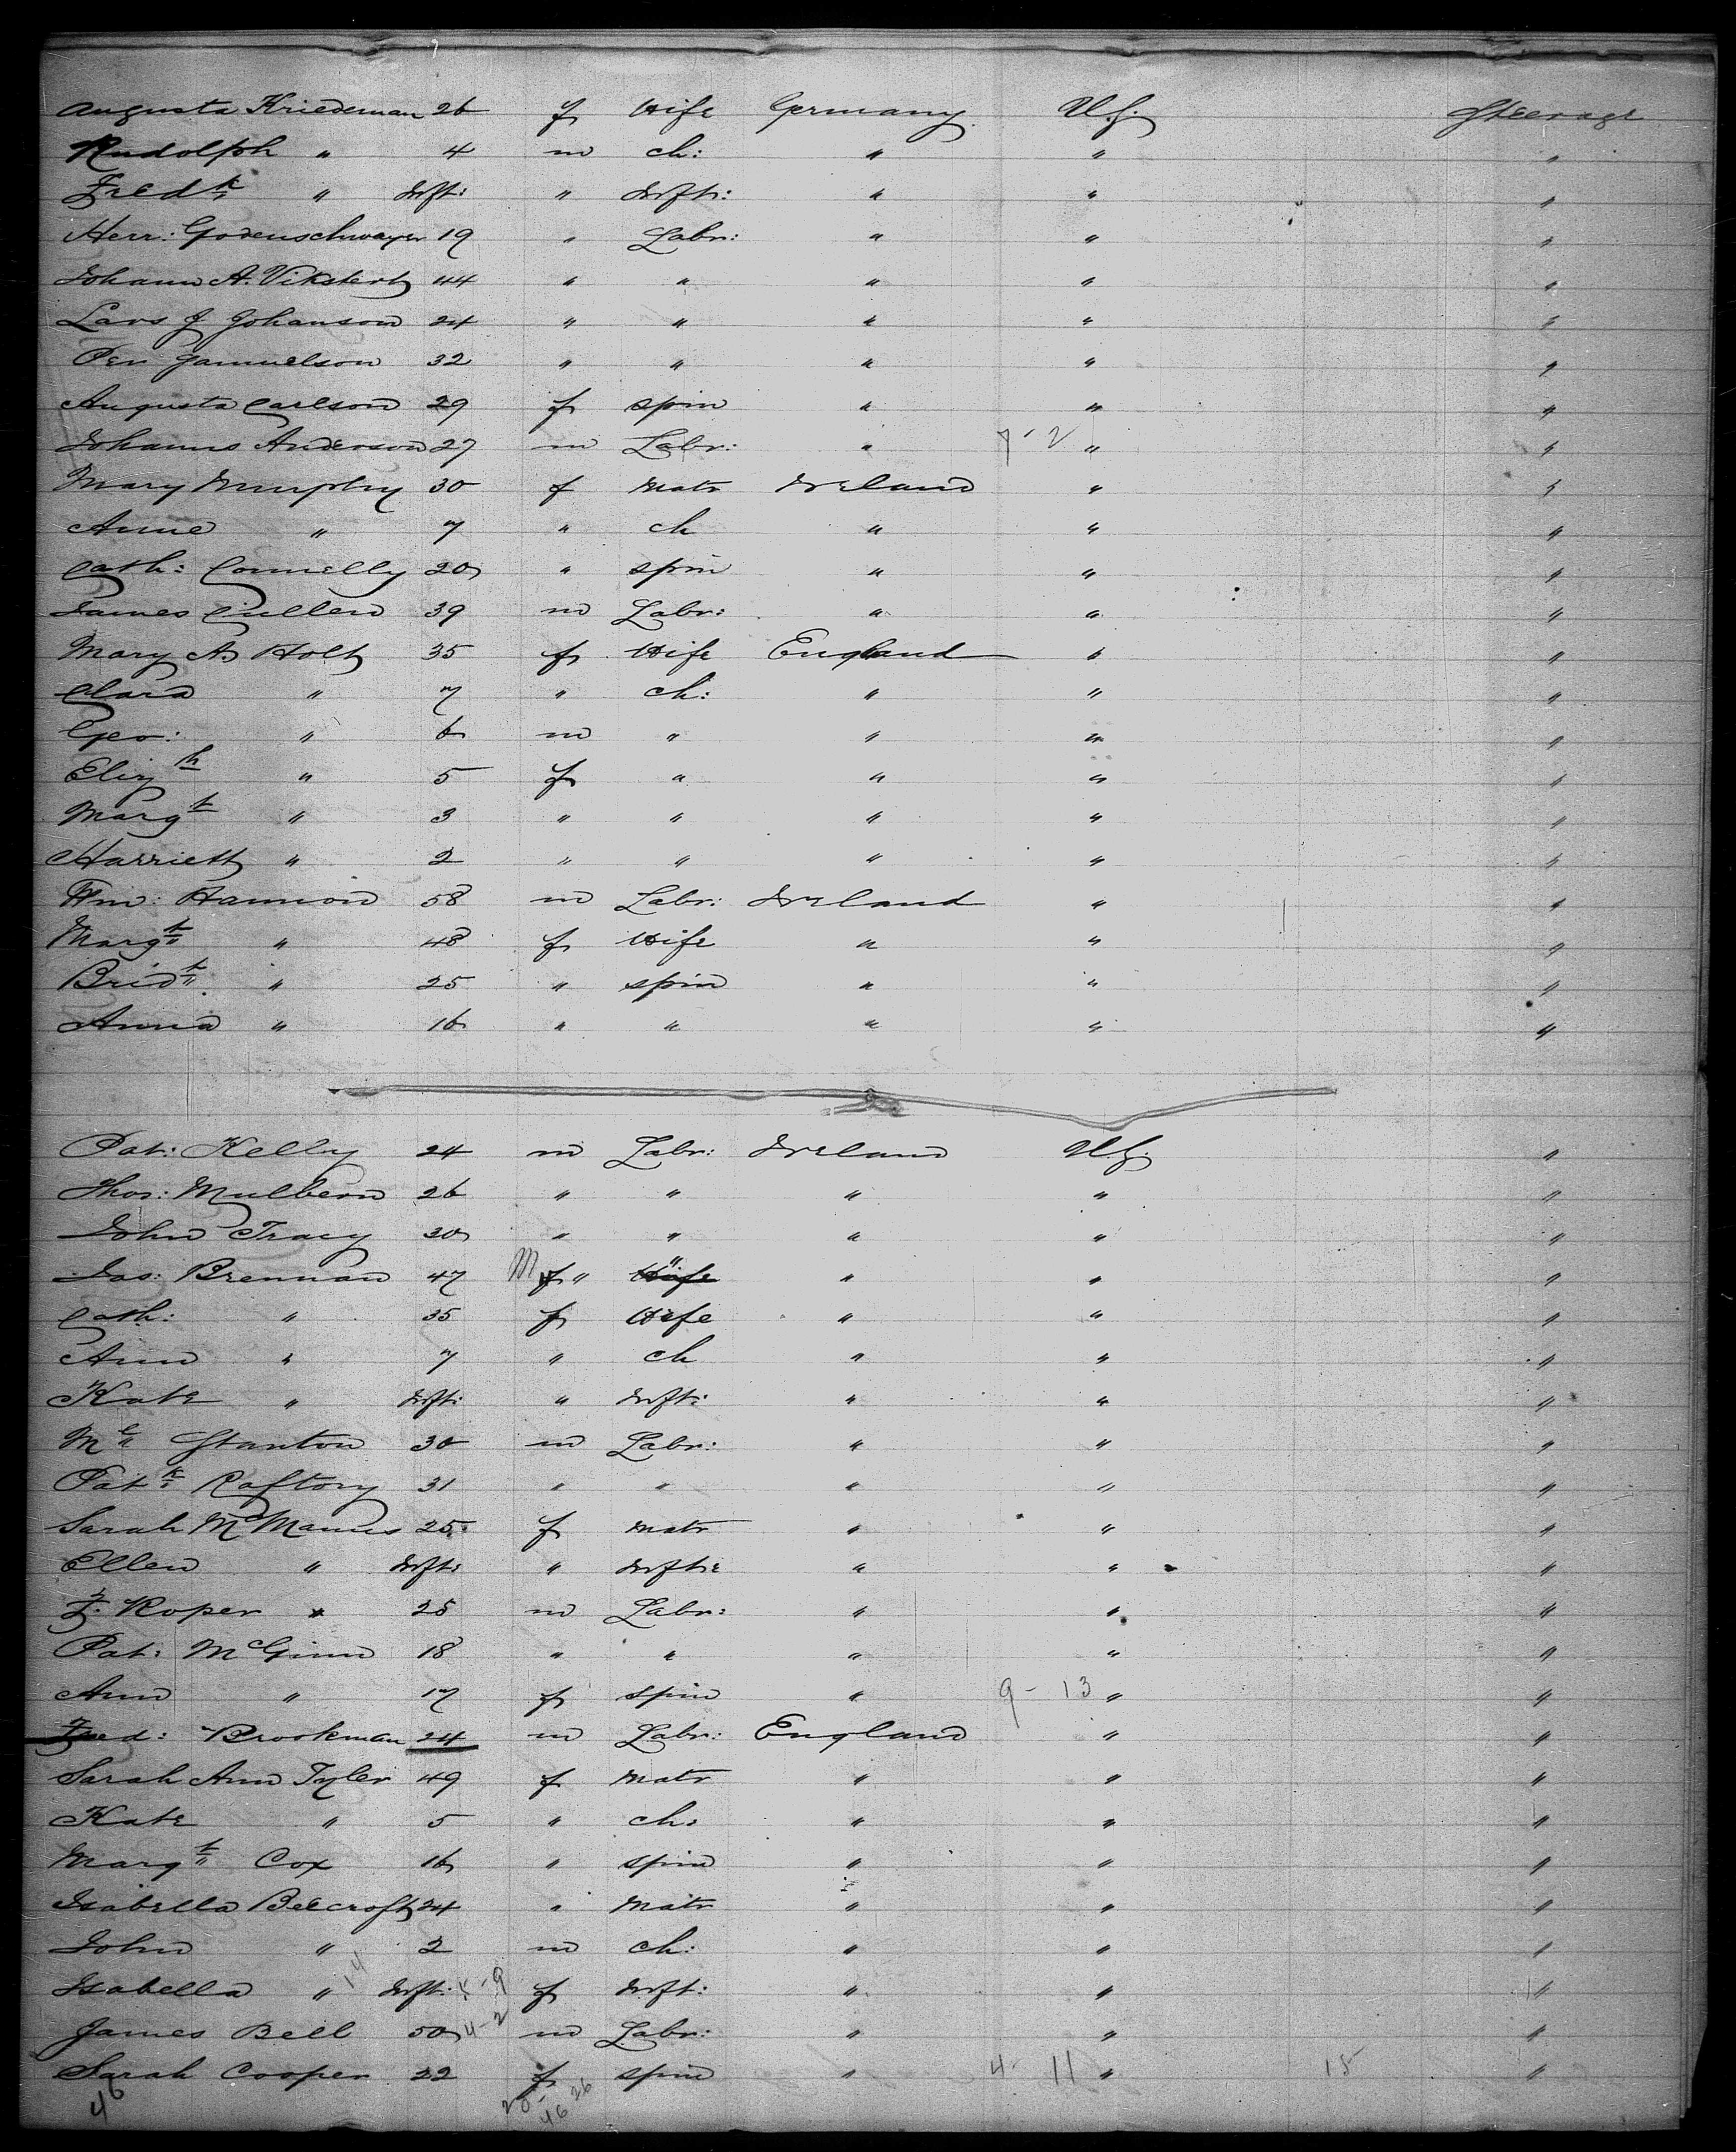 Augusta Kriedeman 26 f Wife Germany U.S. Steerage
Rudolph " 4 m ch: " " "
Fredk " Inft: " Inft: " " "
Herr: Godenschwager 19 " Labr: " " "
Johann A. Vikstert 44 " " " " "
Lars J Johanson 24 " " " " "
Per Samuelson 32 " " " " "
Augusta Carlson 29 f spin " " "
Johanns Anderson 27 m Labr: " 7-2 " "
Mary Murphy 30 f Matr Ireland " "
Anne " 7 " ch " " "
Cath: Connelly 20 " spin " " "
James Cullen 39 m Labr: " " "
Mary A Holt 35 f Wife England " "
Clara " 7 " ch: " " "
Geo: " 6 m " " " "
Elizth " 5 f " " " "
Margt " 3 " " " " "
Harriett " 2 " " " " "
Wm: Hannon 58 m Labr: Ireland " "
Margt " 48 f Wife " " "
Bridt " 25 " spin " " "
Anna " 16 " " " " "
Pat: Kelly 24 m Labr: Ireland U.S. "
Thos: Mulbern 26 " " " " "
John Tracy 30 " " " " "
Jas: Brennan 47 M f " Wife " " " "
Cath: " 35 f Wife " " "
Ann " 7 " ch " " "
Kate " Inft: " Inft: " " "
Ml Stanton 30 m Labr: " " "
Patk Raftory 31 " " " " "
Sarah McManus 25 f Matr " " "
Ellen " Inft: " Inft: " " "
F. Roper 25 m Labr: " " "
Pat: McGinn 18 " " " " "
Ann " 17 f Spin " 9-13 " "
Fred: Brookman 24 m Labr: England " "
Sarah Ann Tyler 49 f Matr " " "
Kate " 5 " ch: " " "
Margt Cox 16 " spin " " "
Isabella Beecroft 24 " Matr " " "
John " 2 m ch: " " "
Isabella " 14 Inft: 5-9 f Inft: " " "
James Bell 50 4-2 m Labr: " " "
Sarah Cooper 22 f spin " 4-11 " 15 "
46 20-26
46